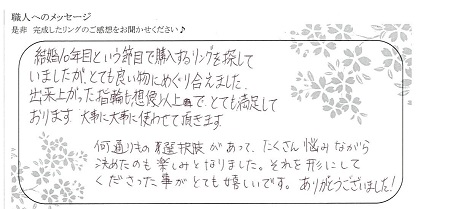 職人へのメッセージ
是非 完成したリングのご感想をお聞かせください♪
結婚10年目という節目で購入するリングを探して
いましたが、とても良い物にめぐり合えました。
出来上がった指輪も想像以上で、とても満足して
おります。大事に大事に使わせて頂きます。
何通りもの選択肢があって、たくさん悩みながら
決めたのも楽しみとなりました。それを形にして
くださった事がとても嬉しいです。ありがとうございました!